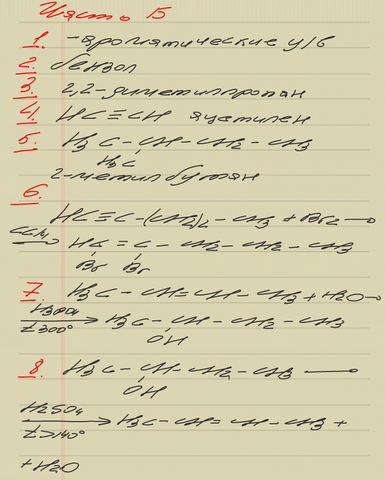 Часть Б
1. -ароматические у/в
2. бензол
3. 2,2-диметилпропан
4. HC≡CH ацетилен
5. H3C-CH-CH2-CH3
H3C
2-метилбутан
6.
HC≡C-(CH2)2-CH3 + Br2 →
CCl4 → HC=C-CH2-CH2-CH3
Br Br
7. H3C-CH=CH-CH3 + H2O →
H3PO4 t 300° → H3C-CH-CH2-CH3
OH
8. H3C-CH-CH2-CH3 →
OH
H2SO4 t>140° → H3C-CH=CH-CH3 +
+ H2O